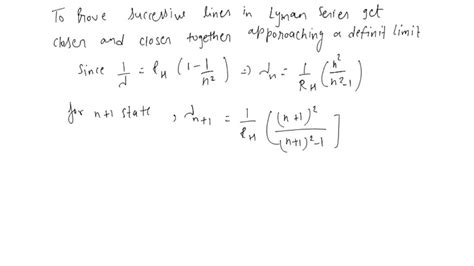 To Prove successive lines in Lyman Series get
closer and closer together apporoaching a definit limit
Since 1/λ = R_H (1 - 1/n²) ⇒ λ_n = 1/R_H (n²/n²-1)
for n+1 state, λ_n+1 = 1/R_H [(n+1)²/(n+1)²-1]